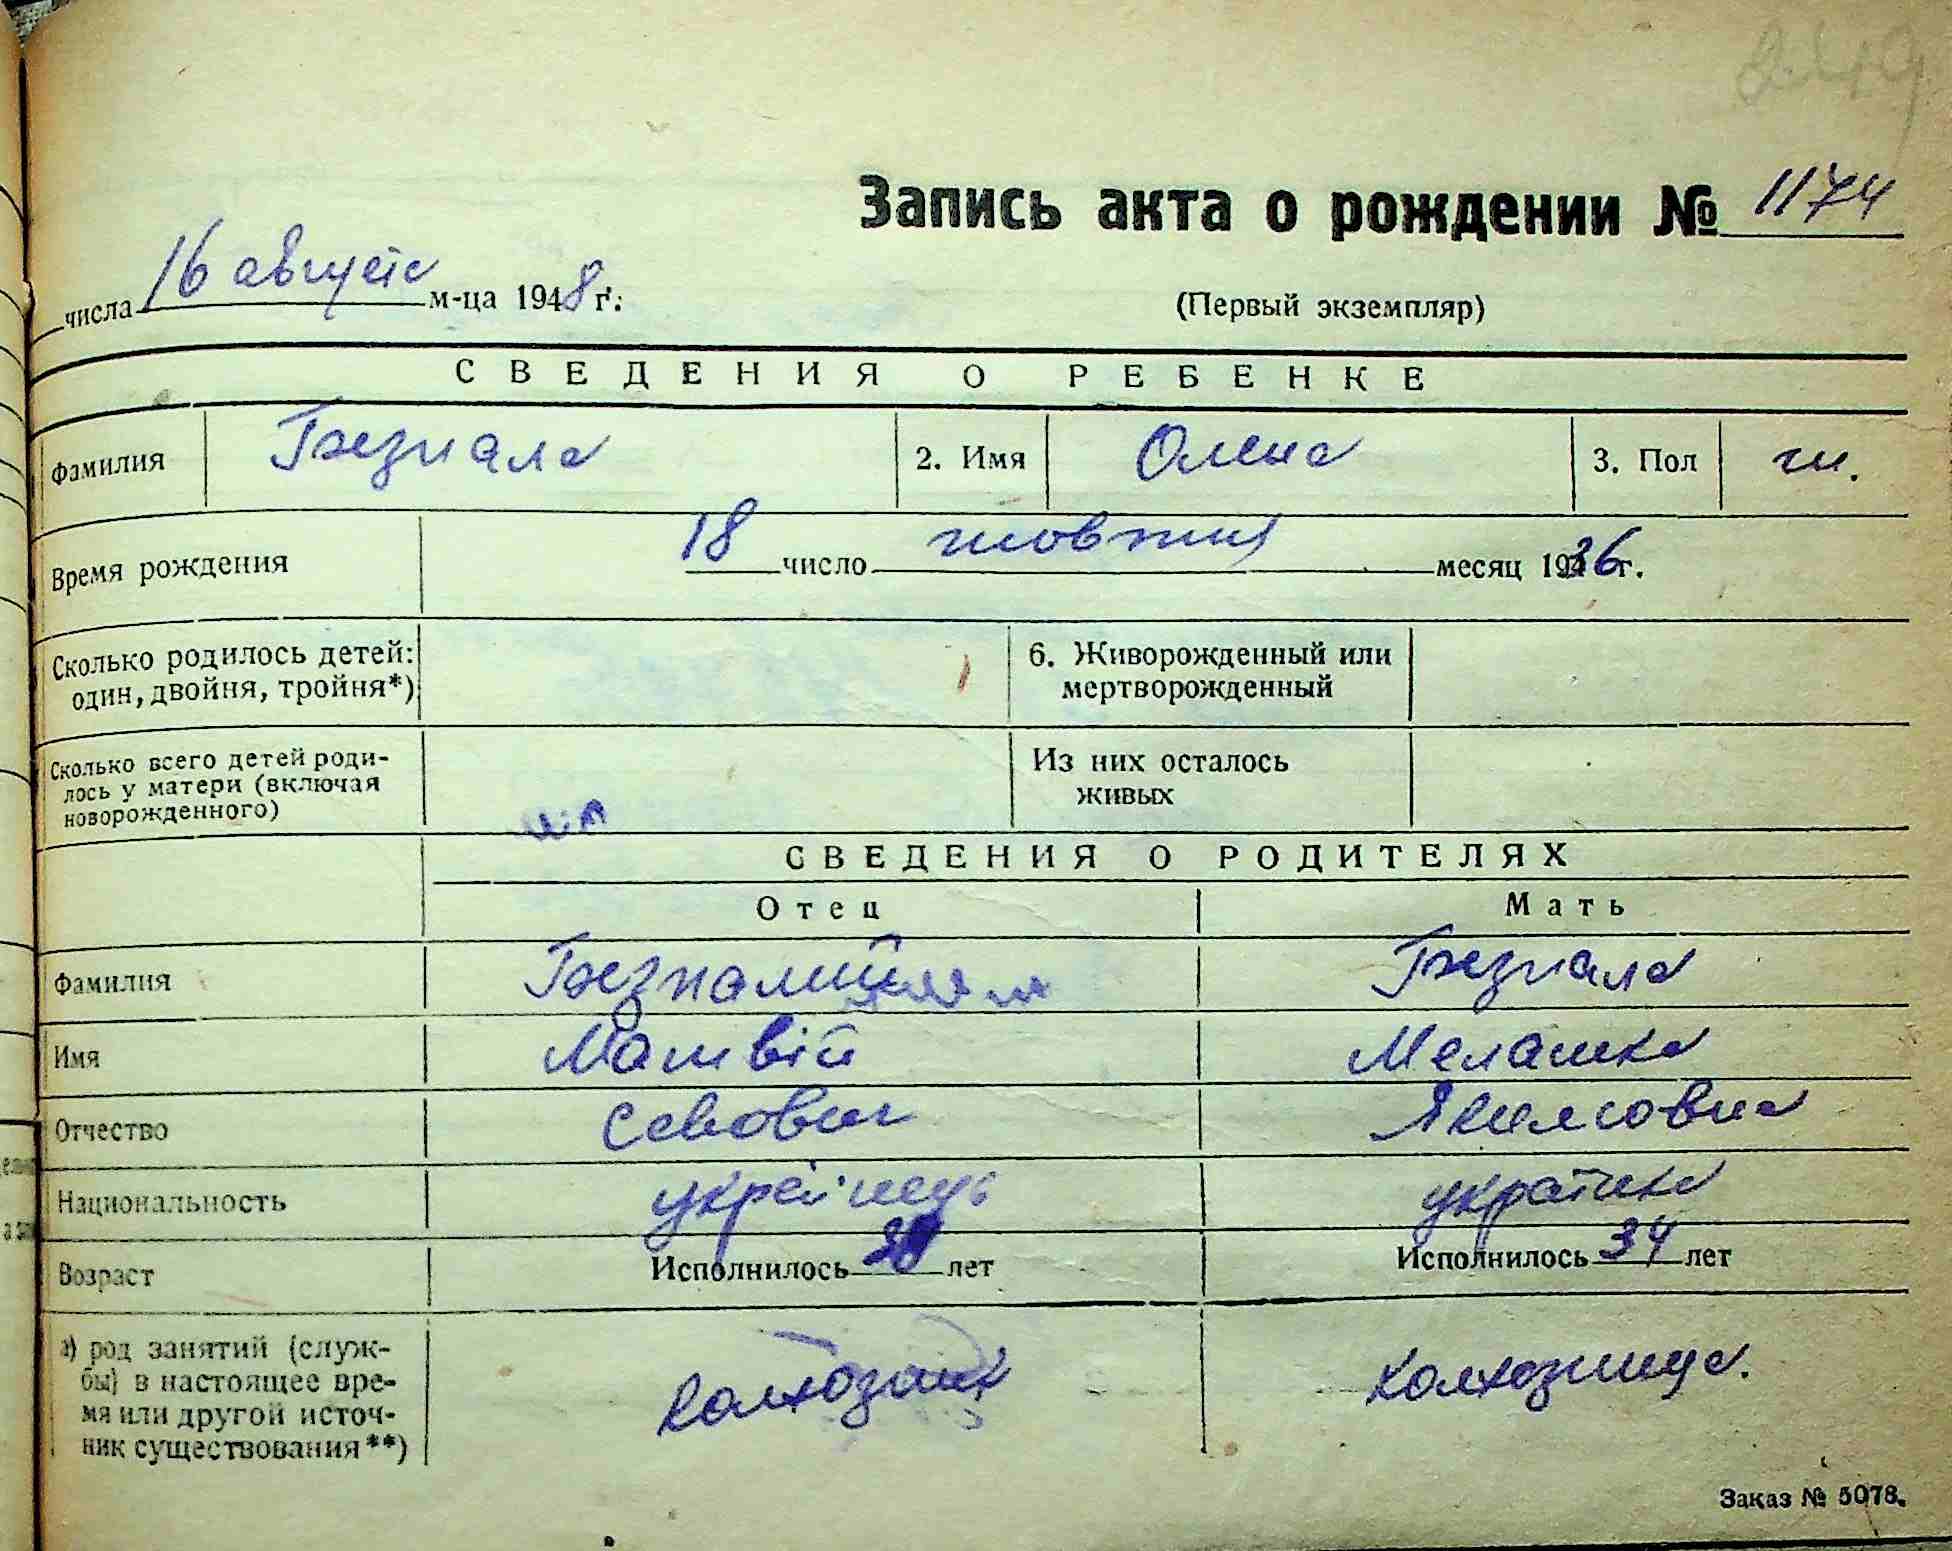 249
Запись акта о рождении № 1174
числа 16 августа м-ца 1948 г.
(Первый экземпляр)
СВЕДЕНИЯ О РЕБЕНКЕ
Фамилия Безпала 2. Имя Олена 3. Пол ж.
Время рождения 18 число жовтня месяц 1936 г.
Сколько родилось детей: один, двойня, тройня*)
6. Живорожденный или мертворожденный
Сколько всего детей родилось у матери (включая новорожденного)
Из них осталось живых
СВЕДЕНИЯ О РОДИТЕЛЯХ
Отец Мать
Фамилия Безпала
Имя Матвій Мелашка
Отчество Савович Якимовна
Национальность українець українка
Возраст Исполнилось лет Исполнилось 34 лет
а) род занятий (службы) в настоящее время или другой источник существования**)
колхозник колхозница.
Заказ № 5078.